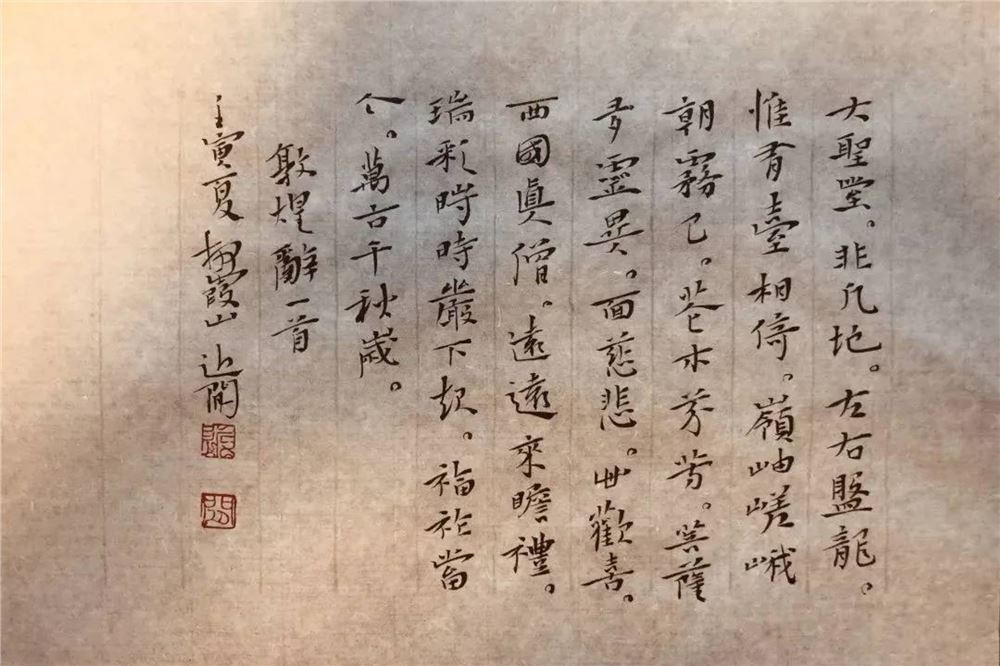 大聖堂。非凡地。左右盤龍。
惟有臺相倚。嶺岫嵯峨
朝霧已。花木芬芳。菩薩
多靈異。面慈悲。心歡喜。
西國眞僧。遠遠來瞻禮。
瑞彩時時巖下起。福祚當
今。萬古千秋歲。
敦煌辭一首
壬寅夏 霞山